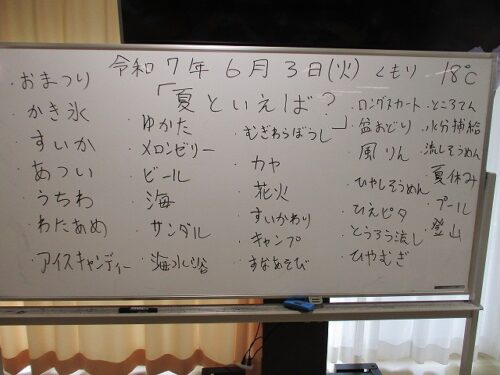 令和7年6月3日(火) くもり 18℃
「夏といえば?」
・おまつり
・かき氷
・すいか
・あつい
・うちわ
・わたあめ
・アイスキャンディー
・ゆかた
・メロンゼリー
・ビール
・海
・サンダル
・海水浴
・むぎわらぼうし
・カヤ
・花火
・すいかわり
・キャンプ
・すなあそび
・ロングスカート
・盆おどり
・風りん
・ひやしそうめん
・ひえピタ
・とうろう流し
・ひやむぎ
・ところてん
・水分補給
・流しそうめん
・夏休み
・プール
・登山